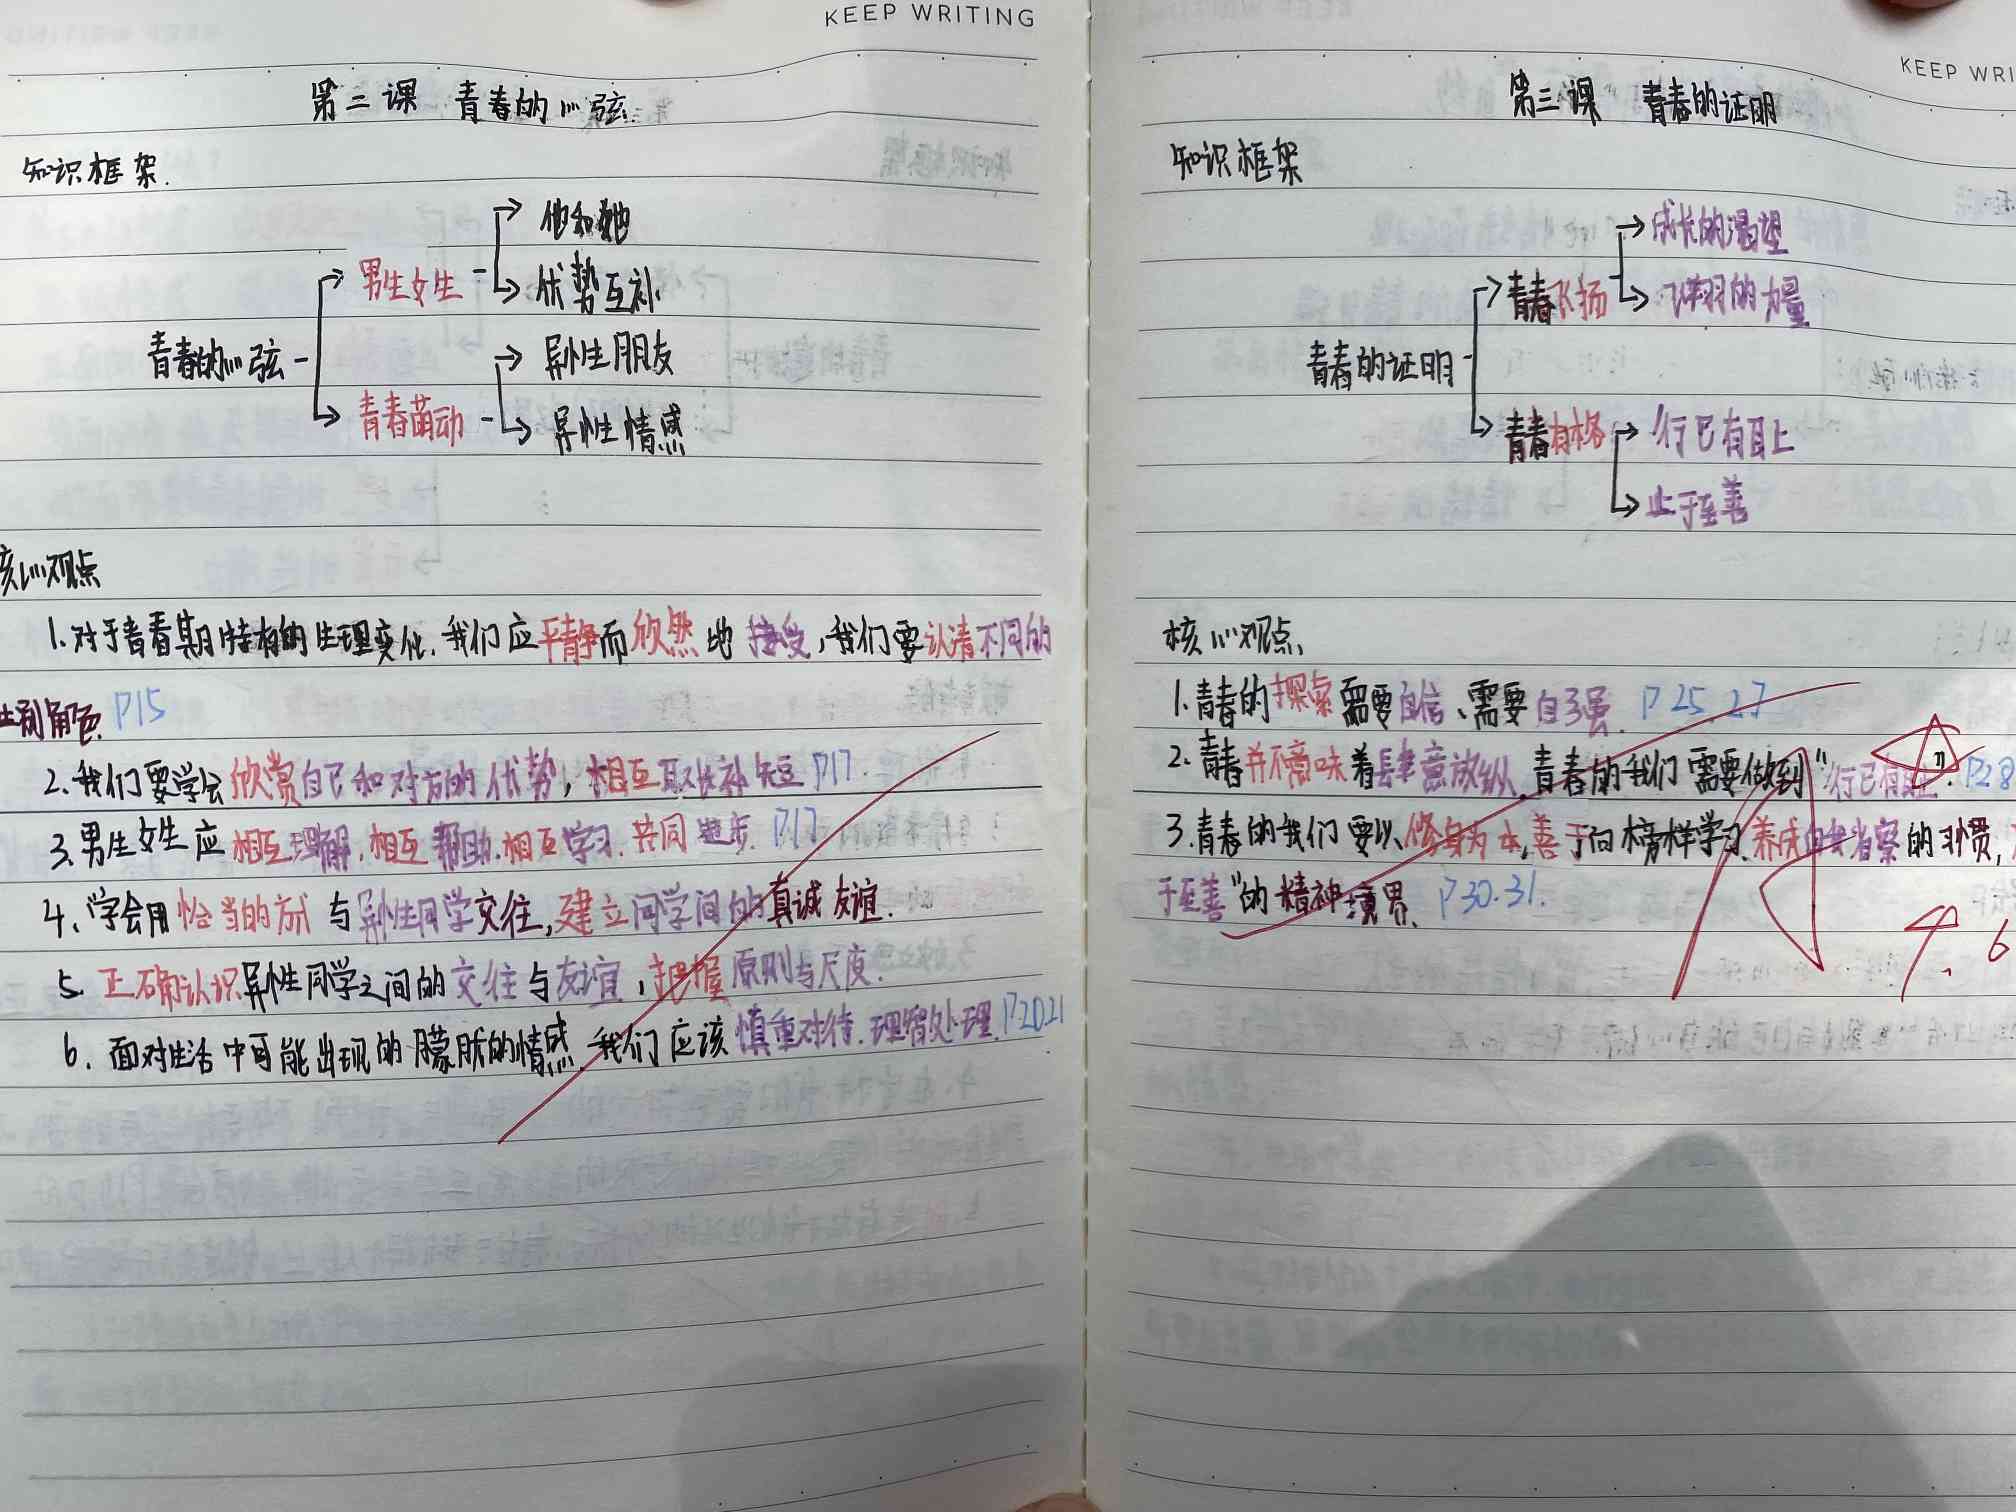 KEEP WRITING
第二课 青春的心弦
知识框架
他和她
男生女生
优势互补
青春的心弦
异性朋友
青春萌动
异性情感
核心观点
1.对于青春期特有的生理变化,我们应平静而欣然地接受,我们要认清不同的
性别角色 P15
2.我们要学会欣赏自己和对方的优势,相互取长补短 P17
3.男生女生应相互理解,相互帮助,相互学习,共同进步 P17
4.学会用恰当的方式与异性同学交往,建立同学间的真诚友谊.
5.正确认识异性同学之间的交往与友谊,把握原则与尺度.
6.面对生活中可能出现的朦胧的情感,我们应该慎重对待.理智处理. P20.21
KEEP WRI
第三课 青春的证明
知识框架
成长的渴望
青春飞扬
飞翔的力量
青春的证明
青春有格
行己有耻
止于至善
核心观点
1.青春的探索需要自信、需要自强. P25.27
2.青春并不意味着肆意放纵,青春的我们需要做到"行己有耻". P28
3.青春的我们要以修身为本,善于向榜样学习,养成自我省察的习惯,
于至善"的精神境界. P30.31.
9.6